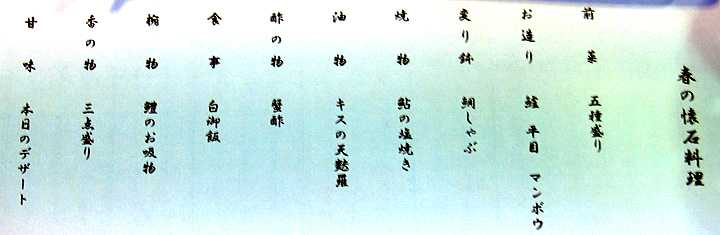 春の懐石料理
前菜 五種盛り
お造り 鱸 平目 マンボウ
変り鉢 鯛しゃぶ
焼物 鮎の塩焼き
油物 キスの天麩羅
酢の物 蟹酢
食事 白御飯
椀物 鱧のお吸物
香の物 三点盛り
甘味 本日のデザート